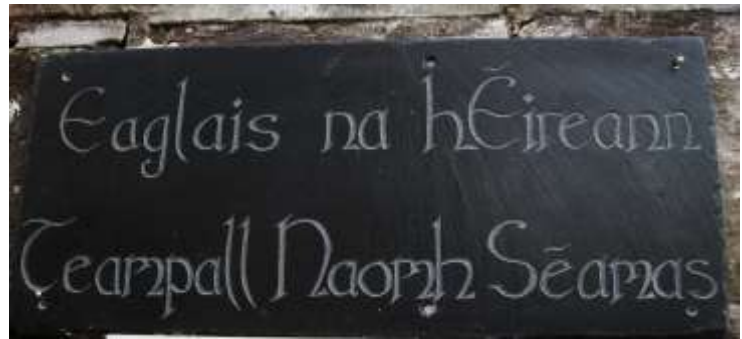 Eaglais na hÉireann
Teampall Naomh Séamas